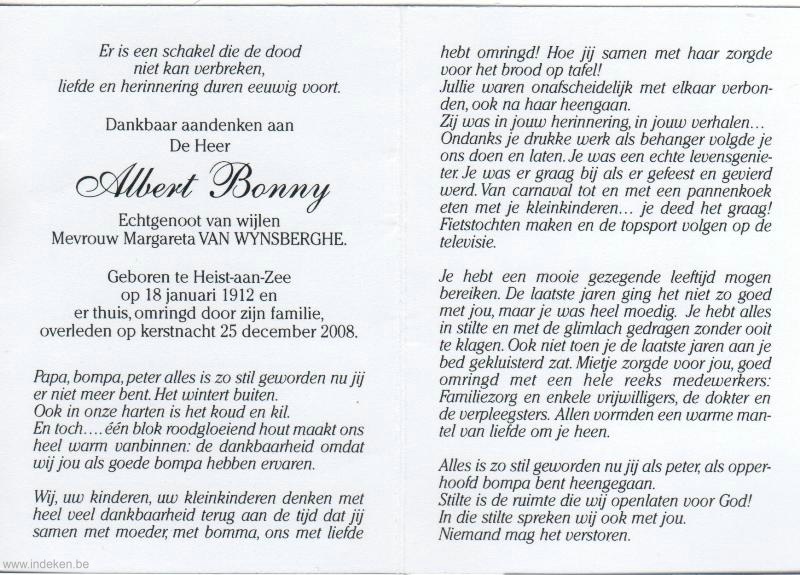 Er is een schakel die de dood
niet kan verbreken,
liefde en herinnering duren eeuwig voort.
Dankbaar aandenken aan
De Heer
Albert Bonny
Echtgenoot van wijlen
Mevrouw Margareta VAN WYNSBERGHE.
Geboren te Heist-aan-Zee
op 18 januari 1912 en
er thuis, omringd door zijn familie,
overleden op kerstnacht 25 december 2008.
Papa, bompa, peter alles is zo stil geworden nu jij
er niet meer bent. Het wintert buiten.
Ook in onze harten is het koud en kil.
En toch.... één blok roodgloeiend hout maakt ons
heel warm vanbinnen: de dankbaarheid omdat
wij jou als goede bompa hebben ervaren.
Wij, uw kinderen, uw kleinkinderen denken met
heel veel dankbaarheid terug aan de tijd dat jij
samen met moeder, met bomma, ons met liefde
hebt omringd! Hoe jij samen met haar zorgde
voor het brood op tafel!
Jullie waren onafscheidelijk met elkaar verbon-
den, ook na haar heengaan.
Zij was in jouw herinnering, in jouw verhalen...
Ondanks je drukke werk als behanger volgde je
ons doen en laten. Je was een echte levensgenie-
ter. Je was er graag bij als er gefeest en gevierd
werd. Van carnaval tot en met een pannenkoek
eten met je kleinkinderen... je deed het graag!
Fietstochten maken en de topsport volgen op de
televisie.
Je hebt een mooie gezegende leeftijd mogen
bereiken. De laatste jaren ging het niet zo goed
met jou, maar je was heel moedig. Je hebt alles
in stilte en met de glimlach gedragen zonder ooit
te klagen. Ook niet toen je de laatste jaren aan je
bed gekluisterd zat. Mietje zorgde voor jou, goed
omringd met een hele reeks medewerkers:
Familiezorg en enkele vrijwilligers, de dokter en
de verpleegsters. Allen vormden een warme man-
tel van liefde om je heen.
Alles is zo stil geworden nu jij als peter, als opper-
hoofd bompa bent heengegaan.
Stilte is de ruimte die wij openlaten voor God!
In die stilte spreken wij ook met jou.
Niemand mag het verstoren.
www.indeken.be